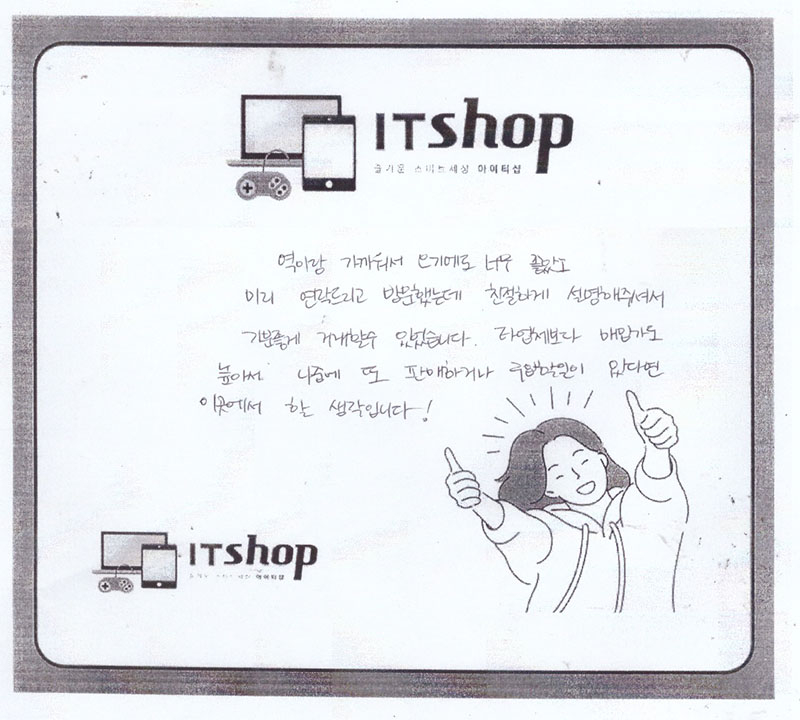 ITshop
즐거운 스마트세상 아이티샵
역이랑 가까워서 오기에도 너무 좋았고
미리 연락드리고 방문했는데 친절하게 설명해주셔서
기분좋게 거래할수 있었습니다. 타업체보다 매입가도
높아서 나중에 또 판매하거나 구매할일이 있다면
이곳에서 할 생각입니다!
ITshop
아이티샵